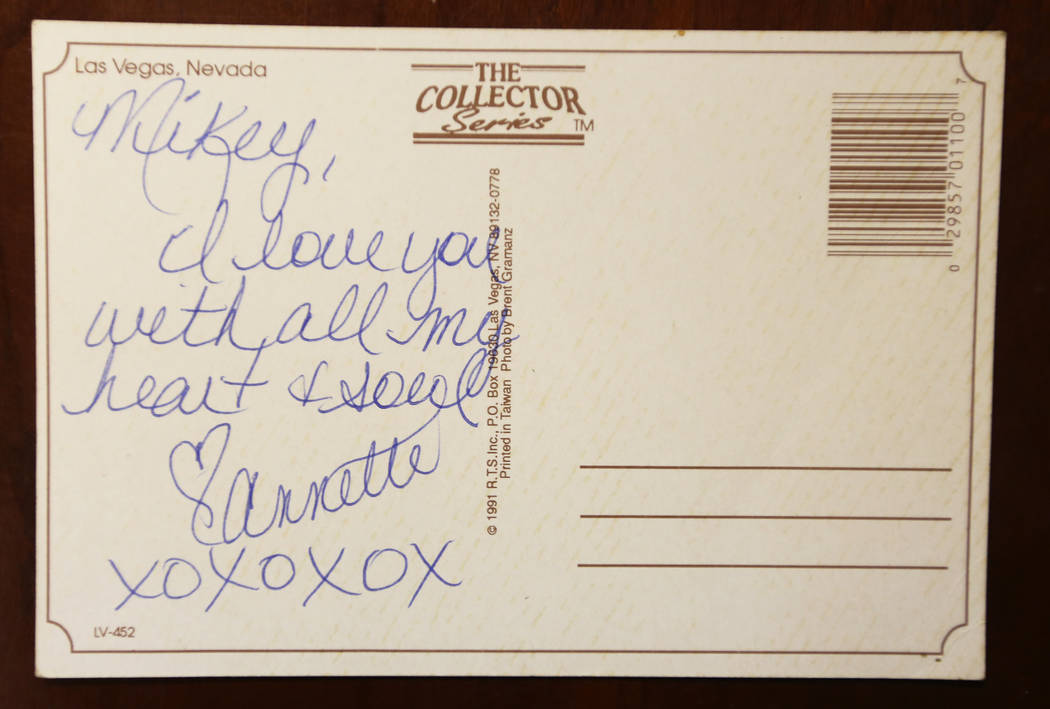 Las Vegas, Nevada
THE
COLLECTOR
Series TM
Mikey,
I love you
with all my
heart & soul
♡ annette
XOXOXOX
LV-452
© 1991 R.T.S.Inc., P.O. Box 19630 Las Vegas, NV 89132-0778
Printed in Taiwan Photo by Brent Gramanz
0 29857 01100 7